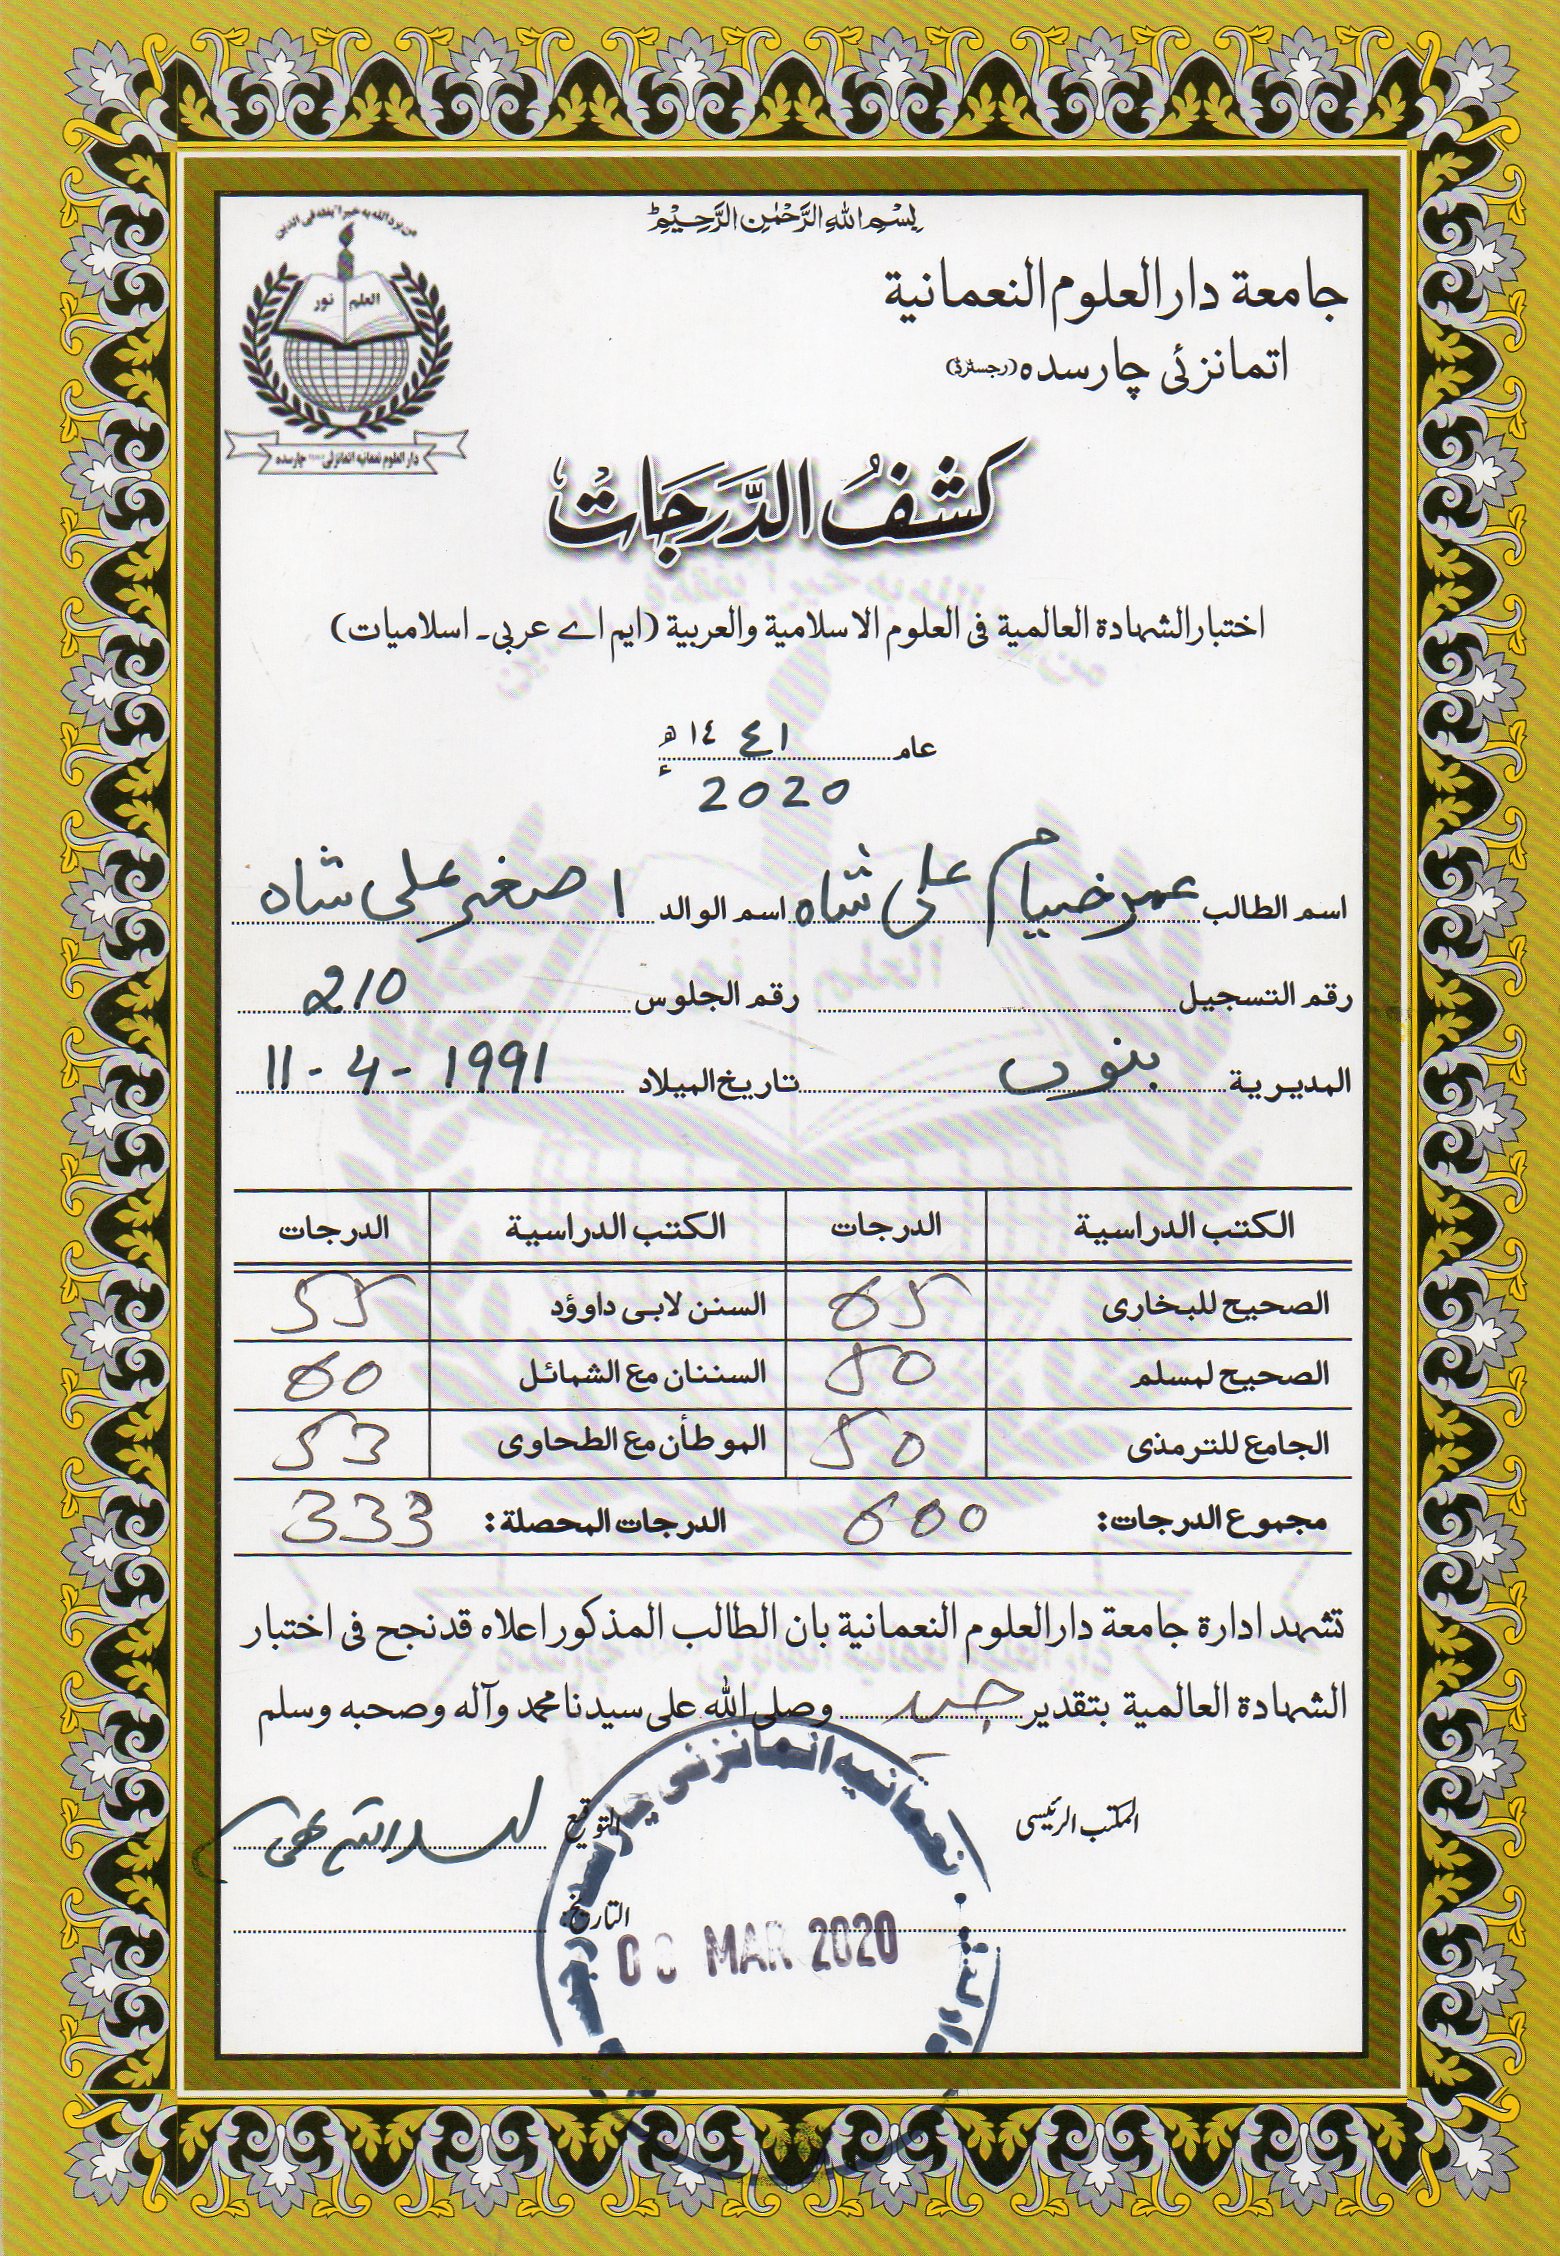 بِسْمِ اللهِ الرَّحْمٰنِ الرَّحِيْمِ
من يرد الله به خيرا يفقه فى الدين
العلم نور
دار العلوم نعمانيه اتمانزئی چارسده
جامعة دار العلوم النعمانية
اتمانزئی چارسده (رجسٹرڈ)
كشفُ الدَّرَجَات
اختبار الشهادة العالمية فى العلوم الاسلامية والعربية (ایم اے عربی۔ اسلامیات)
عام ١٤٤١ھ
2020ء
اسم الطالب عمر خیام علی شاہ اسم الوالد اصغر علی شاہ
رقم التسجيل رقم الجلوس 210
المديرية بنوں تاريخ الميلاد 11-4-1991
الكتب الدراسية الدرجات الكتب الدراسية الدرجات
الصحيح للبخارى 65 السنن لابى داوؤد 55
الصحيح لمسلم 50 السننان مع الشمائل 60
الجامع للترمذى 50 الموطأن مع الطحاوى 53
مجموع الدرجات: 600 الدرجات المحصلة: 333
تشهد ادارة جامعة دار العلوم النعمانية بان الطالب المذكور اعلاه قد نجح فى اختبار
الشهادة العالمية بتقدير جيد وصلى الله على سيدنا محمد وآله وصحبه وسلم
المكتب الرئيسى التوقيع
التاريخ
MAR 2020
نعمانیہ اتمانزئی چارسدہ